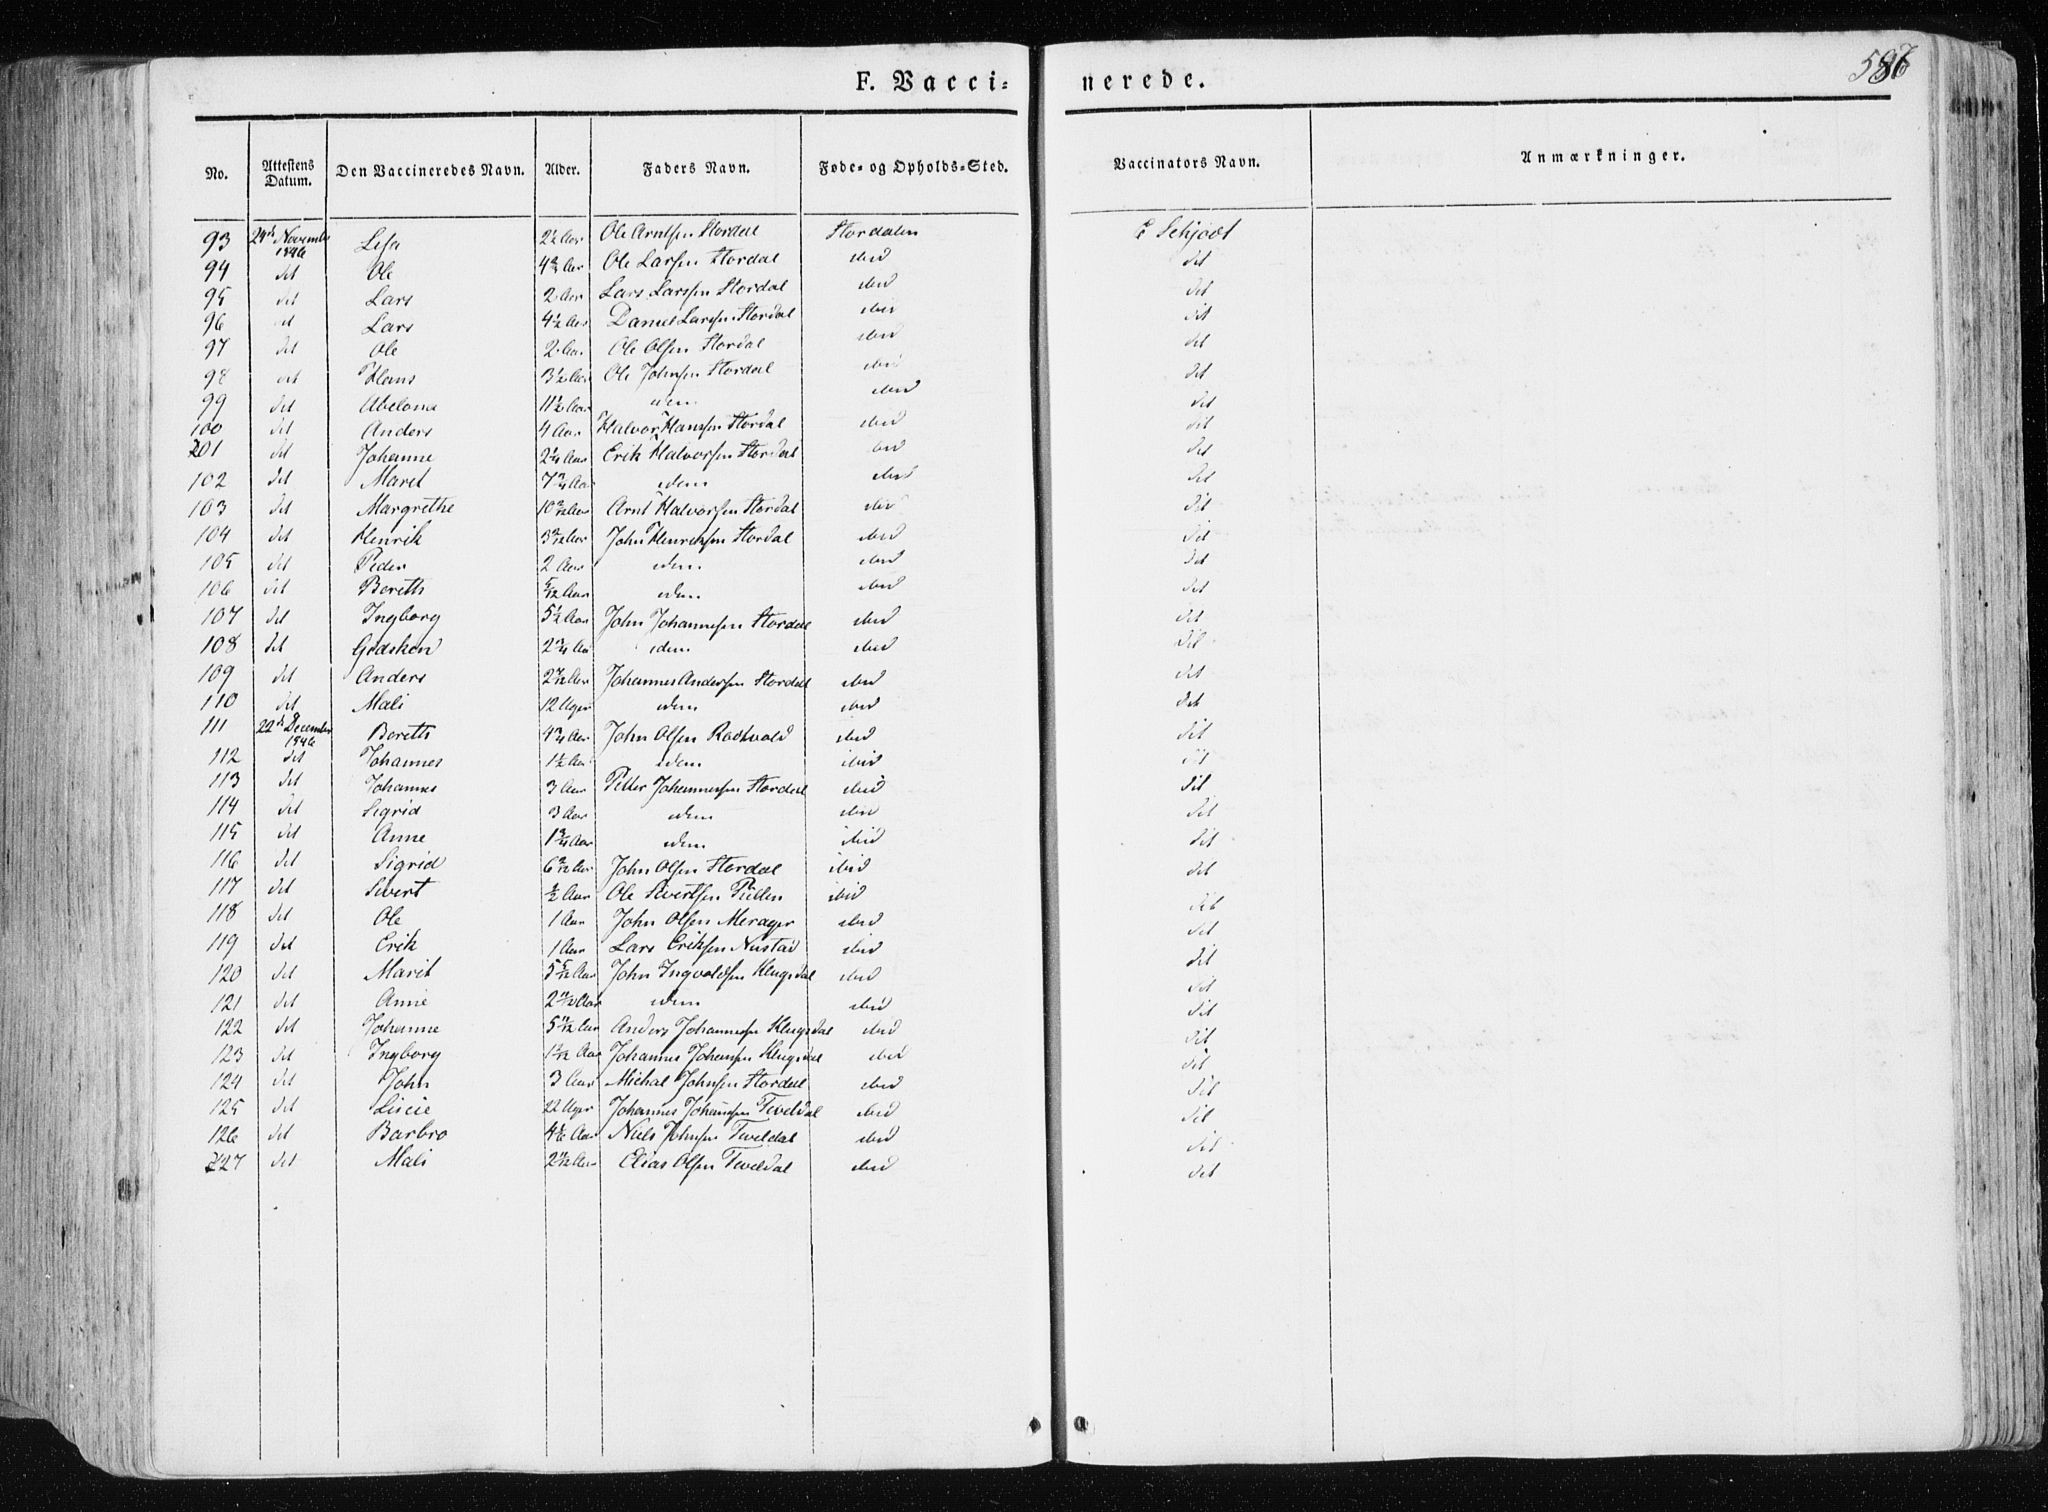 586
F. Vaccinerede.
No. Attestens Datum. Den Vaccineredes Navn. Alder. Faders Navn. Føde- og Opholds-Sted. Vaccinators Navn. Anmærkninger.
93 24de November 1846 Lisa 2½ Aar Ole Arntsen Stordal Stordalen E Schjødt
94 dit Ole Aar Ole Larsen Stordal ibid dit
95 dit Lars 2 Aar Lars Larssen Stordal ibid dit
96 dit Lars 4½ Aar Daniel Larssen Stordal ibid dit
97 dit Ole 2 Aar Ole Olsen Stordal ibid dit
98 dit Hans 3½ Aar Ole Johnsen Stordal ibid dit
99 dit Abelona 11½ Aar idem ibid dit
100 dit Anders 4 Aar Halvor Hanssen Stordal ibid dit
101 dit Johanne 2¼ Aar Erik Halvorsen Stordal ibid dit
102 dit Maret 7¾ Aar idem ibid dit
103 dit Margrethe Aar Arnt Halvorsen Stordal ibid dit
104 dit Henrik Aar John Henriksen Stordal ibid dit
105 dit Peder 2 Aar idem ibid dit
106 dit Bereth 5/12 Aar idem ibid dit
107 dit Ingborg 5½ Aar John Johannesen Stordal ibid dit
108 dit Gidsken 2¾ Aar idem ibid dit
109 dit Anders Aar Johannes Andersen Stordal ibid dit
110 dit Mali 12 Uger idem ibid dit
111 22de December 1846 Bereth 4¾ Aar John Olsen ibid dit
112 dit Johannes 1½ Aar idem ibid dit
113 dit Johannes 3 Aar Petter Johannessen Stordal ibid dit
114 dit Sigrid 3 Aar idem ibid dit
115 dit Anne 1¾ Aar idem ibid dit
116 dit Sigrid Aar John Olsen Stordal ibid dit
117 dit Sivert ½ Aar Ole Sivertsen ibid dit
118 dit Ole 1 Aar John Olsen Merager ibid dit
119 dit Erik 1 Aar Lars Eriksen Nustad ibid dit
120 dit Marit 5 5/12 Aar John Ingvaldsen ibid dit
121 dit Anne Aar idem ibid dit
122 dit Johanne Aar Anders Johannessen ibid dit
123 dit Ingborg Aar Johannes Johansen ibid dit
124 dit John 3 Aar Michal Johnsen Stordal ibid dit
125 dit 22 Uger Johannes Johansen Teveldal ibid dit
126 dit Barbro Aar Niels Johnsen Teveldal ibid dit
127 dit Mali Aar Elias Olsen Teveldal ibid dit